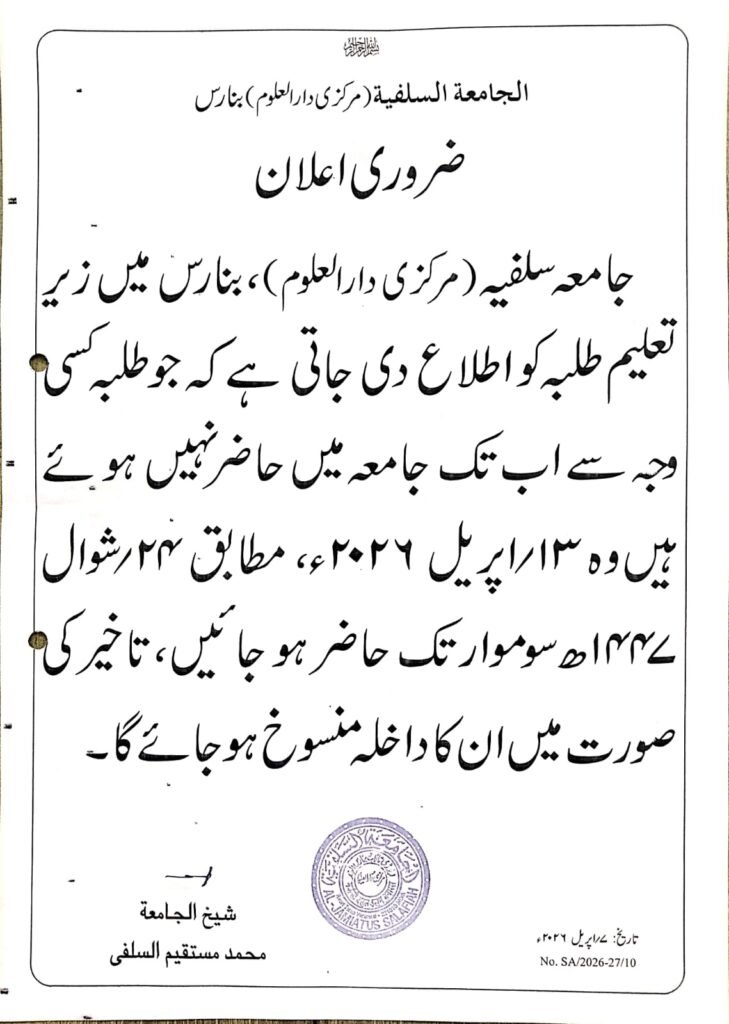 الجامعة السلفية (مرکزی دارالعلوم) بنارس
ضروری اعلان
جامعہ سلفیہ (مرکزی دارالعلوم)، بنارس میں زیر
تعلیم طلبہ کو اطلاع دی جاتی ہے کہ جو طلبہ کسی
وجہ سے اب تک جامعہ میں حاضر نہیں ہوئے
ہیں وہ ۱۳/اپریل ۲۰۲۶ء، مطابق ۲۴/شوال
۱۴۴۷ھ سوموار تک حاضر ہو جائیں، تاخیر کی
صورت میں ان کا داخلہ منسوخ ہو جائے گا۔
شيخ الجامعة
محمد مستقيم السلفى
الجامعة السلفية
AL-JAMIATUS SALAFIAH
تاریخ: ۷/اپریل ۲۰۲۶ء
No. SA/2026-27/10